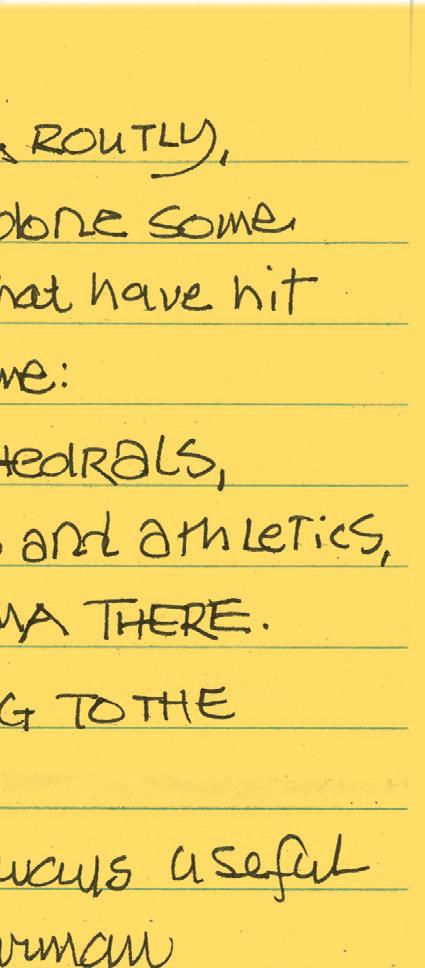 ROUTLY,
done some
hat have hit
me:
hedrals,
and athletics,
MA THERE.
G TO THE
ways useful
rman